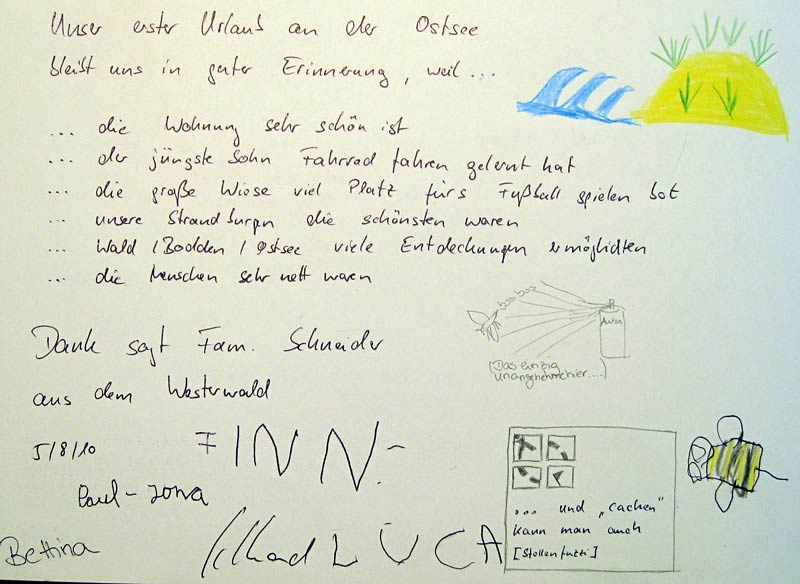 Unser erster Urlaub an der Ostsee
bleibt uns in guter Erinnerung, weil...
... die Wohnung sehr schön ist
... der jüngste Sohn Fahrrad fahren gelernt hat
... die große Wiese viel Platz fürs Fußball spielen bot
... unsere Strandburgen die schönsten waren
... Wald / Bodden / Ostsee viele Entdeckungen ermöglichten
... die Menschen sehr nett waren
bss bss
Autan
(Das einzig
unangenehme hier....)
Dank sagt Fam. Schneider
aus dem Westerwald
5/8/10
FINN
Paul-Jona
Bettina
LUCA
... und „cachen"
kann man auch
[Stollenfutzi]